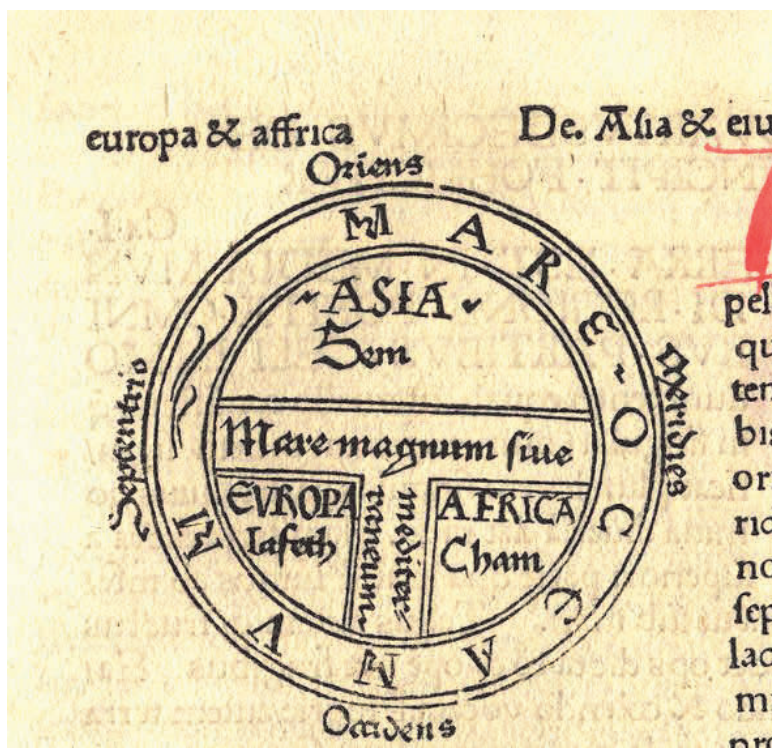 europa & affrica
De. Asia & eiu
Oriens
MARE OCEANVM
ASIA
Sem
Septentrio
Meridies
Mare magnum siue
mediter
raneum
EVROPA
Iafeth
AFRICA
Cham
Occidens
pel
qu
ten
bis
or
no
sep
lac